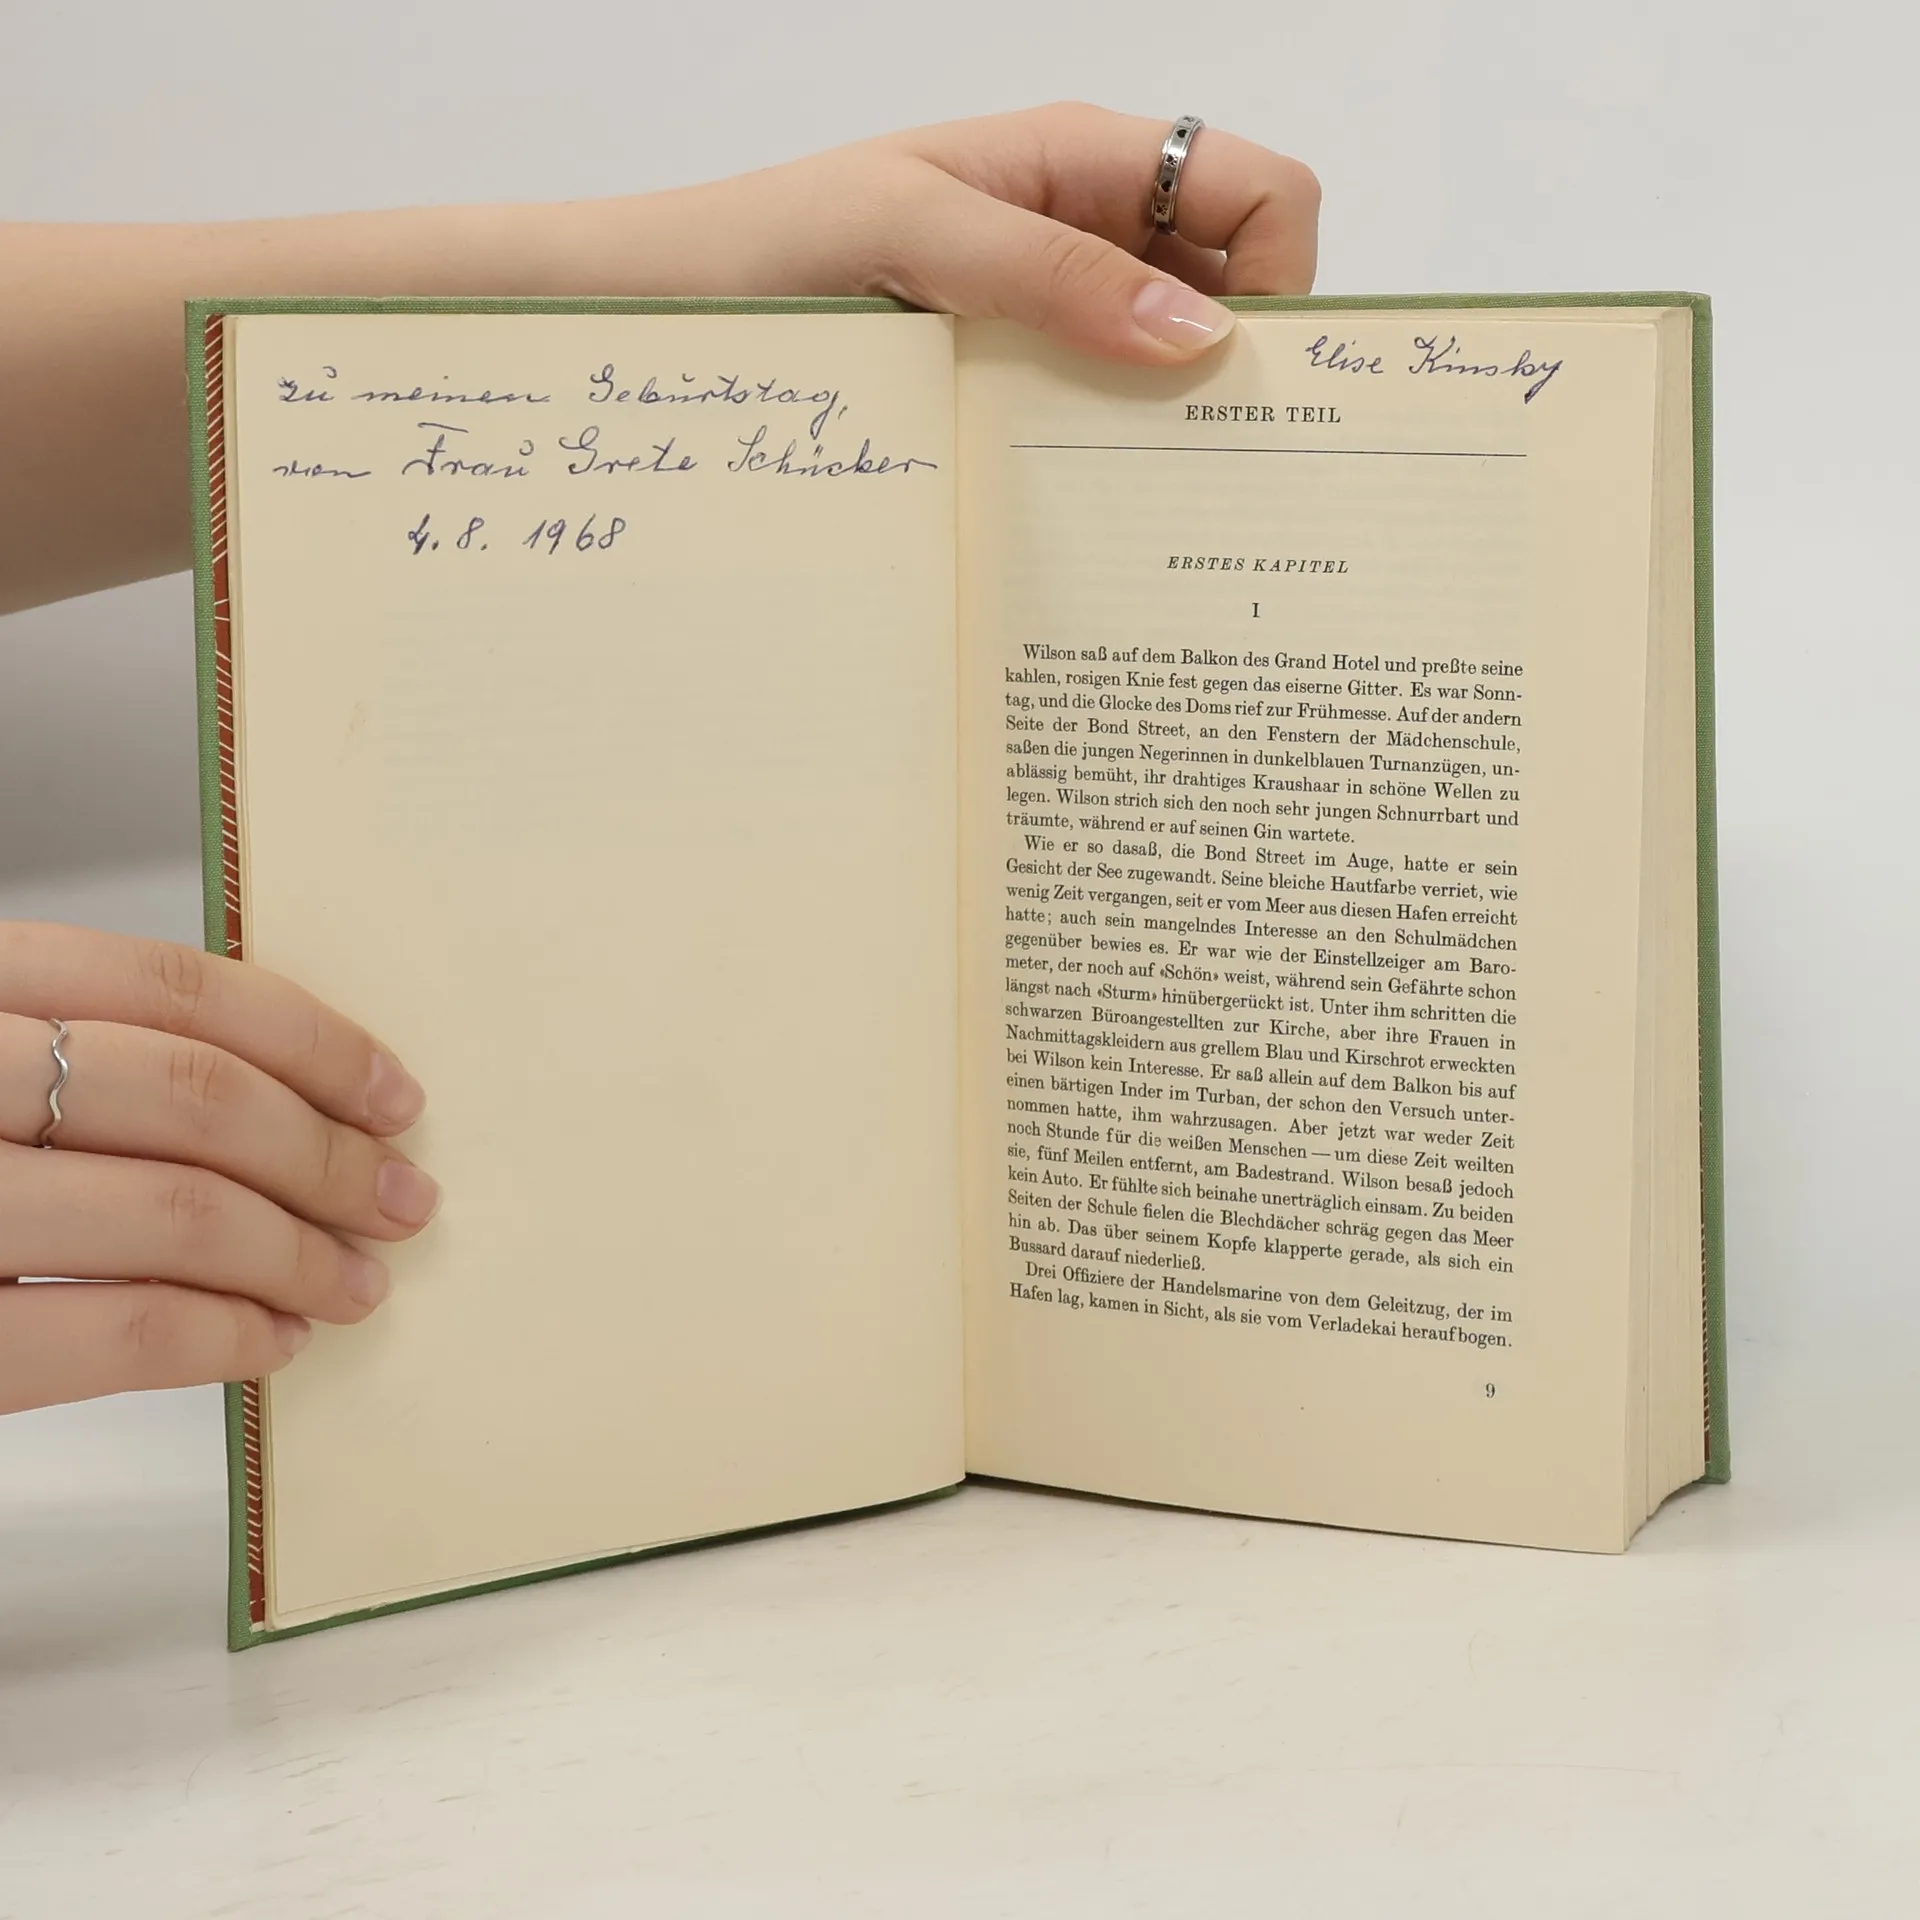 zu meinen Geburtstag,
von Frau Grete Schücker
4. 8. 1968
Elise Kinsky
ERSTER TEIL
ERSTES KAPITEL
I
Wilson saß auf dem Balkon des Grand Hotel und preßte seine
kahlen, rosigen Knie fest gegen das eiserne Gitter. Es war Sonn-
tag, und die Glocke des Doms rief zur Frühmesse. Auf der andern
Seite der Bond Street, an den Fenstern der Mädchenschule,
saßen die jungen Negerinnen in dunkelblauen Turnanzügen, un-
ablässig bemüht, ihr drahtiges Kraushaar in schöne Wellen zu
legen. Wilson strich sich den noch sehr jungen Schnurrbart und
träumte, während er auf seinen Gin wartete.
Wie er so dasaß, die Bond Street im Auge, hatte er sein
Gesicht der See zugewandt. Seine bleiche Hautfarbe verriet, wie
wenig Zeit vergangen, seit er vom Meer aus diesen Hafen erreicht
hatte; auch sein mangelndes Interesse an den Schulmädchen
gegenüber bewies es. Er war wie der Einstellzeiger am Baro-
meter, der noch auf «Schön» weist, während sein Gefährte schon
längst nach «Sturm» hinübergerückt ist. Unter ihm schritten die
schwarzen Büroangestellten zur Kirche, aber ihre Frauen in
Nachmittagskleidern aus grellem Blau und Kirschrot erweckten
bei Wilson kein Interesse. Er saß allein auf dem Balkon bis auf
einen bärtigen Inder im Turban, der schon den Versuch unter-
nommen hatte, ihm wahrzusagen. Aber jetzt war weder Zeit
noch Stunde für die weißen Menschen — um diese Zeit weilten
sie, fünf Meilen entfernt, am Badestrand. Wilson besaß jedoch
kein Auto. Er fühlte sich beinahe unerträglich einsam. Zu beiden
Seiten der Schule fielen die Blechdächer schräg gegen das Meer
hin ab. Das über seinem Kopfe klapperte gerade, als sich ein
Bussard darauf niederließ.
Drei Offiziere der Handelsmarine von dem Geleitzug, der im
Hafen lag, kamen in Sicht, als sie vom Verladekai heraufbogen.
9